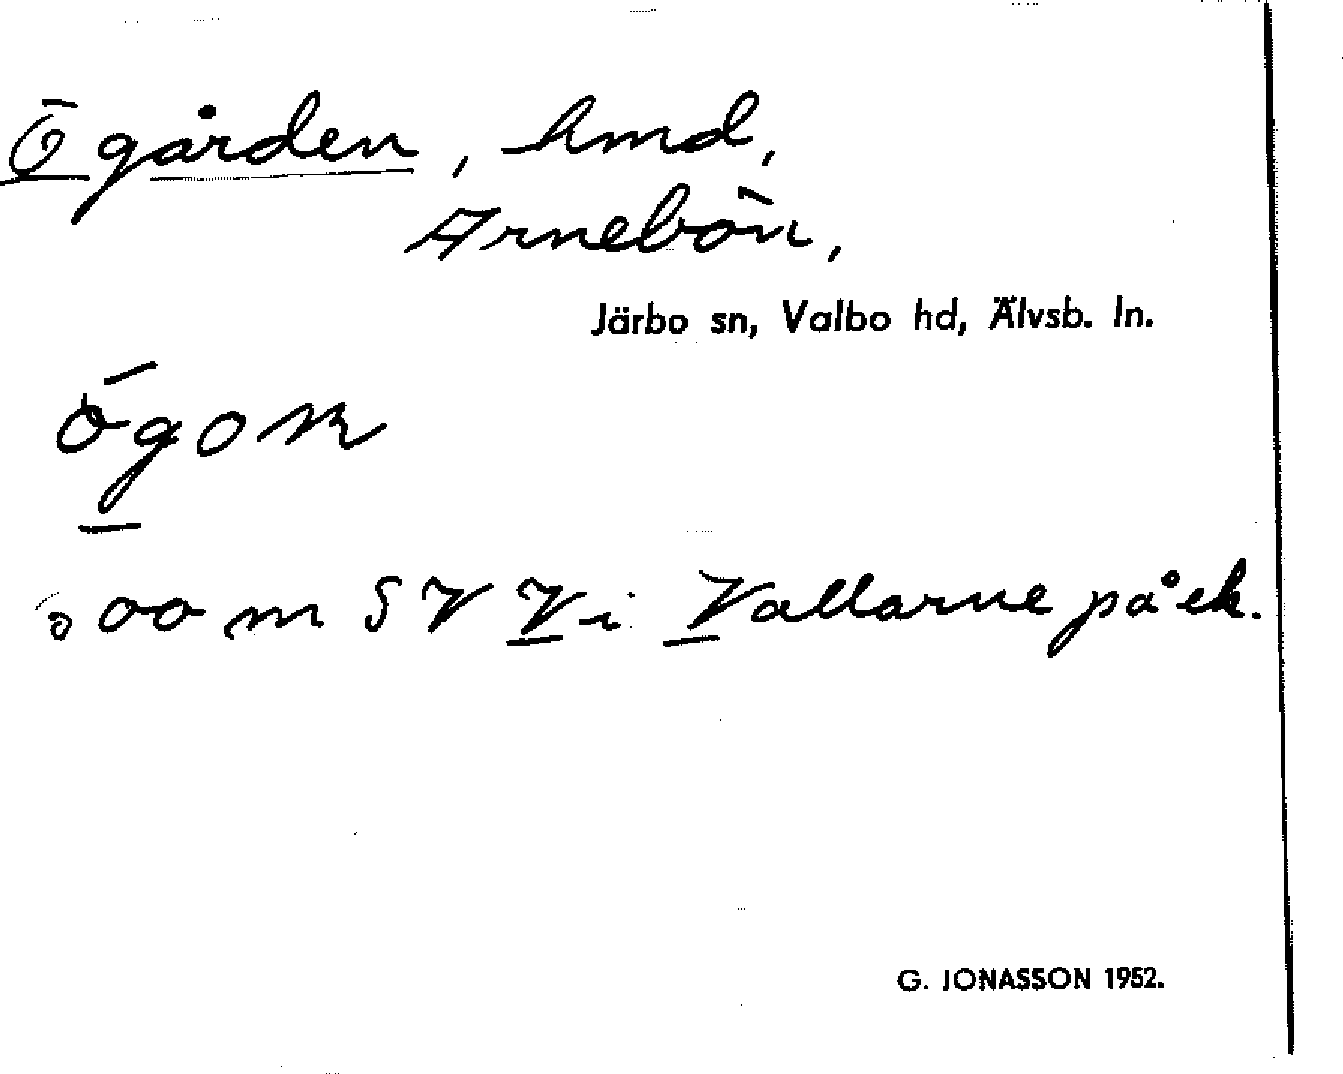 Ögården, hmd,
Arnebön,
Järbo sn, Valbo hd, Älvsb. ln.
ögoɴ
500 m SV V i Vallarne på ek.
G. JONASSON 1952.